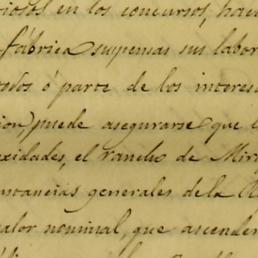 cioses en los concursos, hac
fábrica suspensas sus labor
todos ó parte de los interes
cion, puede asegurarse que l
oxidades, el rancho de Mir
nstancias generales de la
valor nominal, que ascender